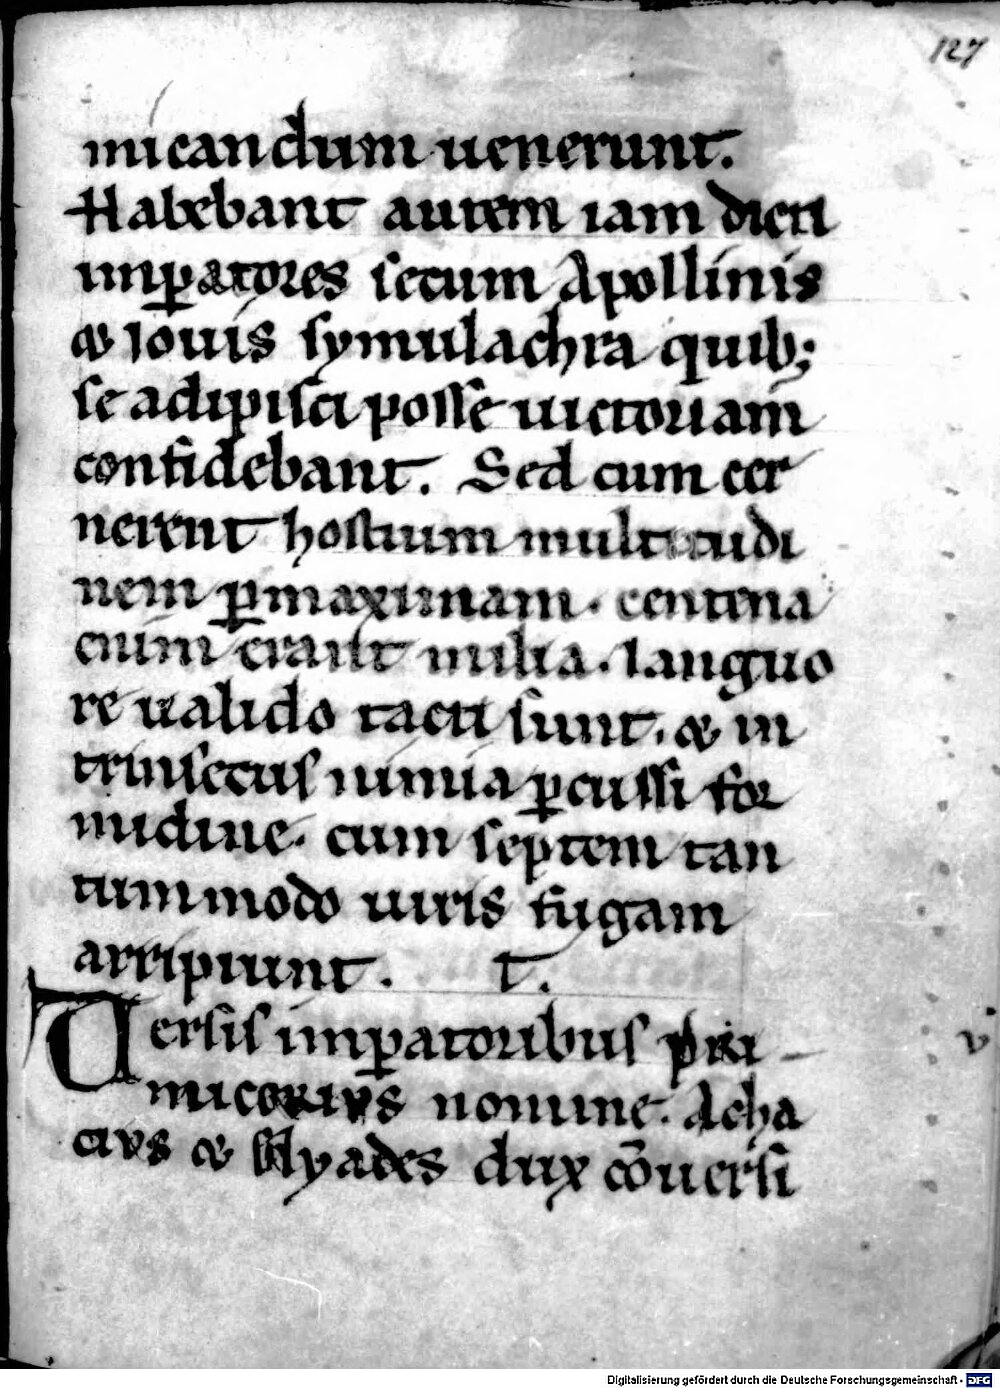 127
micandum uenerunt.
Habebant autem iam dicti
imꝑatores secum Apollinis
& Iouis symulachra quib;
se adipisci posse uictoriam
confidebant. Sed cum cer
nerent hostium multitudi
nem ꝑmaximam. centena
enim erant milia. languo
re ualido tacti sunt. & in
trinsecus nimia ꝑcussi for
midine. cum septem tan
tummodo uiris fugam
arripiunt. T.
Uersis imꝑatoribus pri
micerius nomine. Acha
cius & Elyades dux cōuersi
v
Digitalisierung gefördert durch die Deutsche Forschungsgemeinschaft - DFG